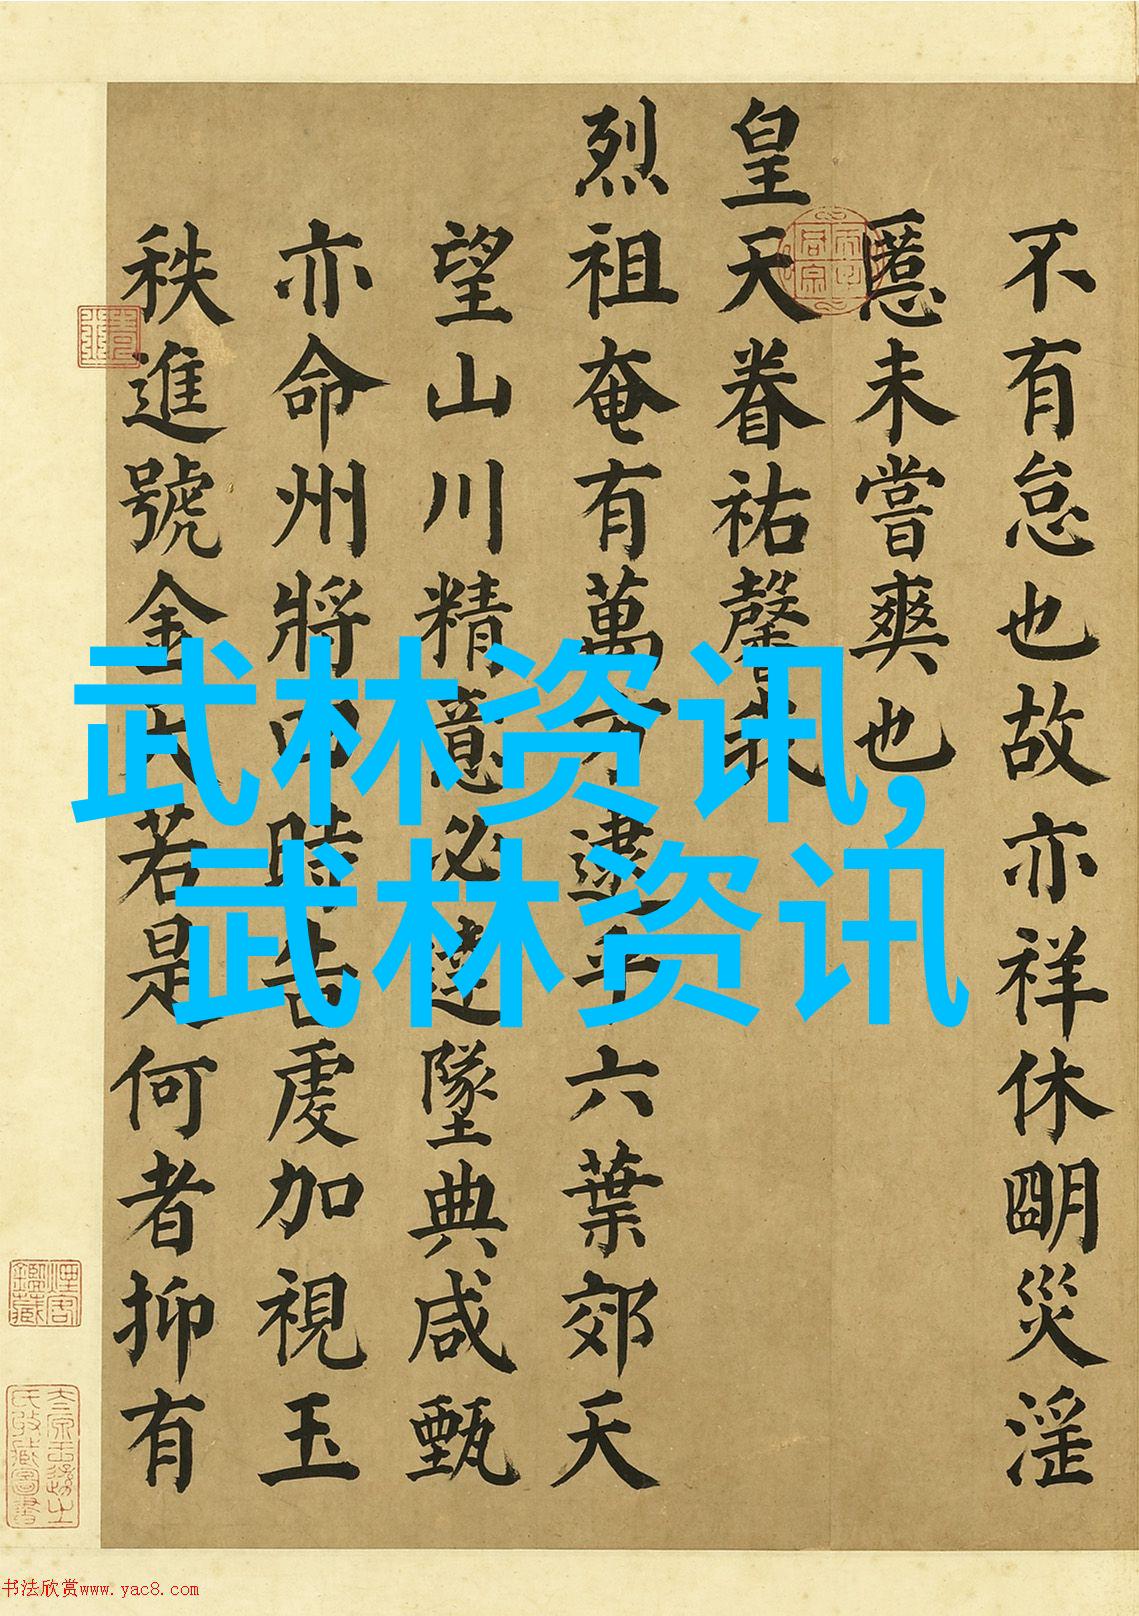 不有怠也故亦祥休明災淫
慝未嘗爽也
皇天眷祐馨我
烈祖奄有萬方逮乎六葉郊天
望山川精意必達墜典咸甄
亦命州將四時告虔加視玉
秩進號金天若是何者抑有
武林资讯,
武林资讯
书法欣赏www.yac8.com